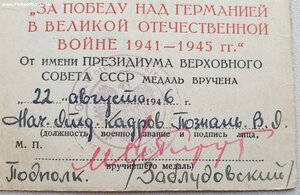 "ЗА ПОБЕДУ НАД ГЕРМАНИЕЙ
В ВЕЛИКОЙ ОТЕЧЕСТВЕННОЙ
ВОЙНЕ 1941—1945 гг."
От имени ПРЕЗИДИУМА ВЕРХОВНОГО
СОВЕТА СССР МЕДАЛЬ ВРУЧЕНА
„22" августа 1946 г.
Нач. Отд. Кадров Познань. В.О.
(должность, военное звание и подпись лица,
М. П.
вручившего медаль)
Подполк. /Заблудовский/